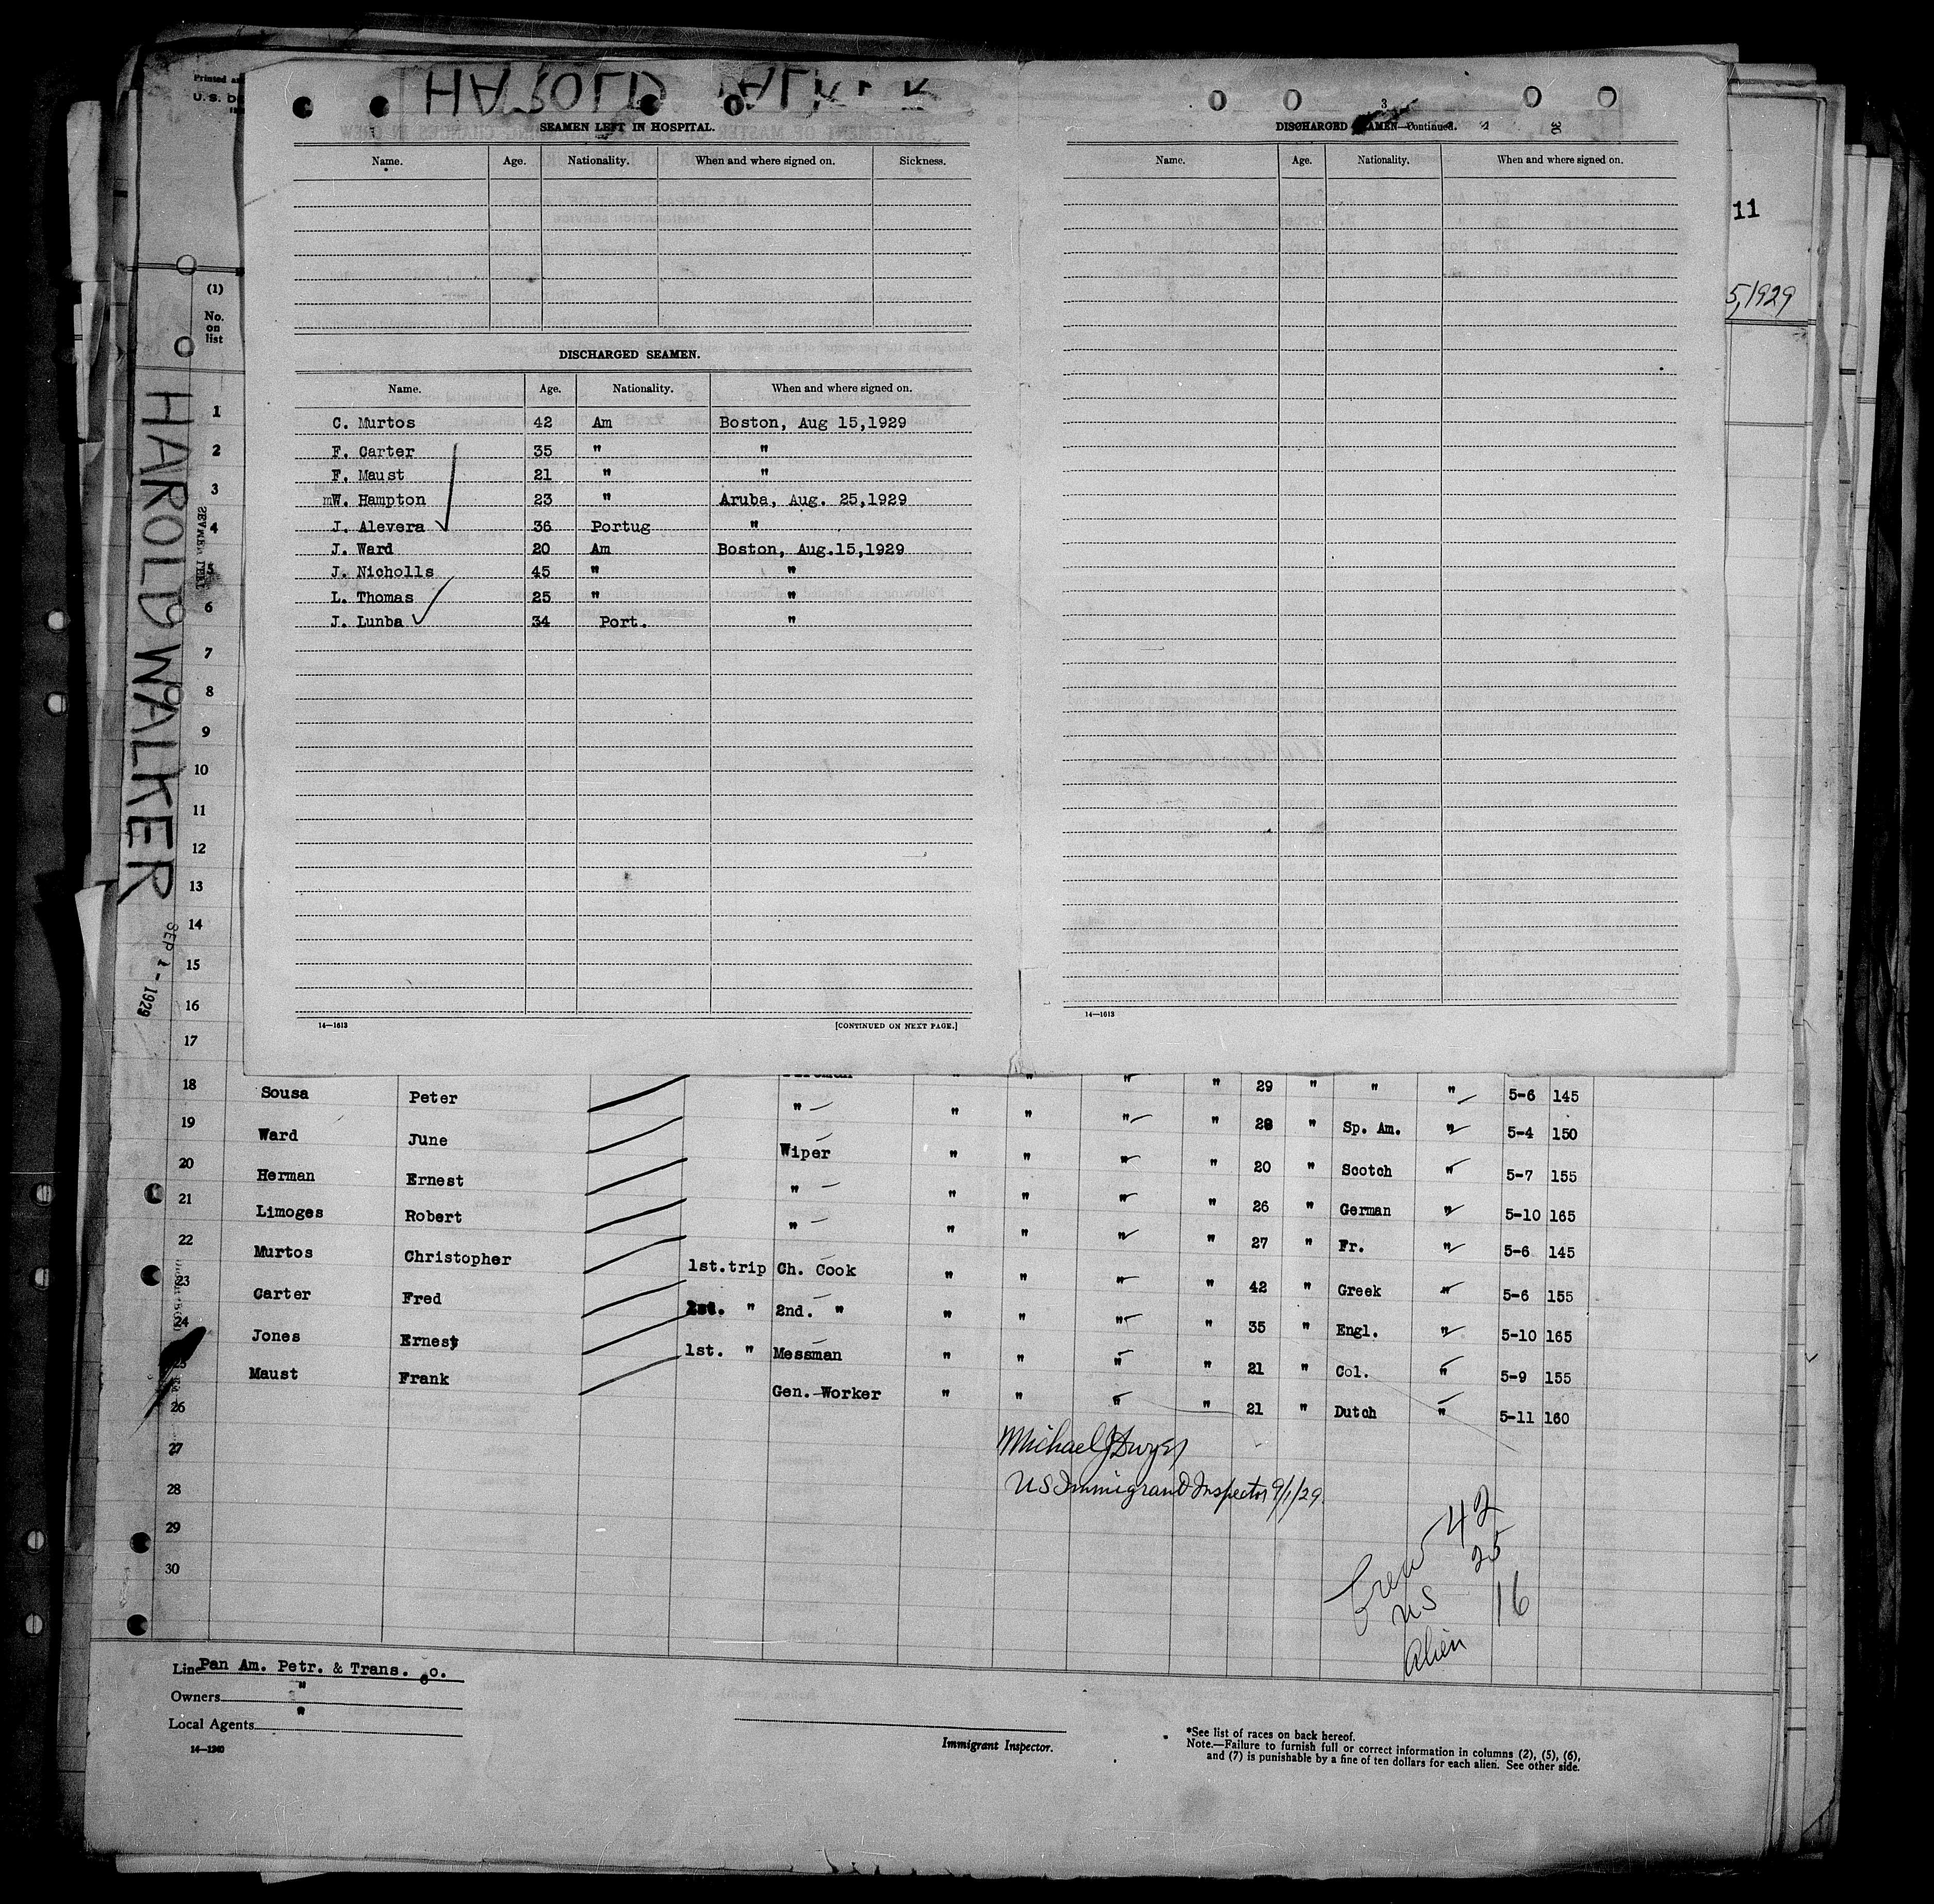 HAROLD WALKER
Printed
U.S. D
SEAMEN LEFT IN HOSPITAL.
Name. Age. Nationality. When and where signed on. Sickness.
DISCHARGED SEAMEN.
Name. Age. Nationality. When and where signed on.
C. Murtos 42 Am Boston, Aug 15,1929
F. Carter 35 " "
F. Maust 21 " "
mW. Hampton 23 " Aruba, Aug. 25,1929
J. Alevera 36 Portug "
J. Ward 20 Am Boston, Aug.15,1929
J. Nicholls 45 " "
L. Thomas 25 " "
J. Lunba 34 Port. "
14—1613 [CONTINUED ON NEXT PAGE.]
3
DISCHARGED SEAMEN—Continued.
Name. Age. Nationality. When and where signed on.
14—1613
11
5,1929
(1)
No. on list
1
2
3
4
5
6
7
8
9
10
11
12
13
14
15
16
17
HAROLD WALKER
SEP 1 - 1929
Fireman " " " " 29 " " " 5-6 145
18 Sousa Peter " " " " " 28 " Sp. Am. " 5-4 150
19 Ward June Wiper " " " " 20 " Scotch " 5-7 155
20 Herman Ernest " " " " " 26 " German " 5-10 165
21 Limoges Robert " " " " " 27 " Fr. " 5-6 145
22 Murtos Christopher 1st.trip Ch. Cook " " " " 42 " Greek " 5-6 155
23 Carter Fred 1st. " 2nd. " " " " " 35 " Engl. " 5-10 165
24 Jones Ernest 1st. " Messman " " " " 21 " Col. " 5-9 155
25 Maust Frank Gen. Worker " " " " 21 " Dutch " 5-11 160
26
27
28
29
30
Michael J Dwyer
US Immigrant Inspector 9/1/29
Crew 42
US 25
Alien 16
Line Pan Am. Petr. & Trans. Co.
Owners "
Local Agents "
14—1240
Immigrant Inspector.
*See list of races on back hereof.
Note.—Failure to furnish full or correct information in columns (2), (5), (6),
and (7) is punishable by a fine of ten dollars for each alien. See other side.